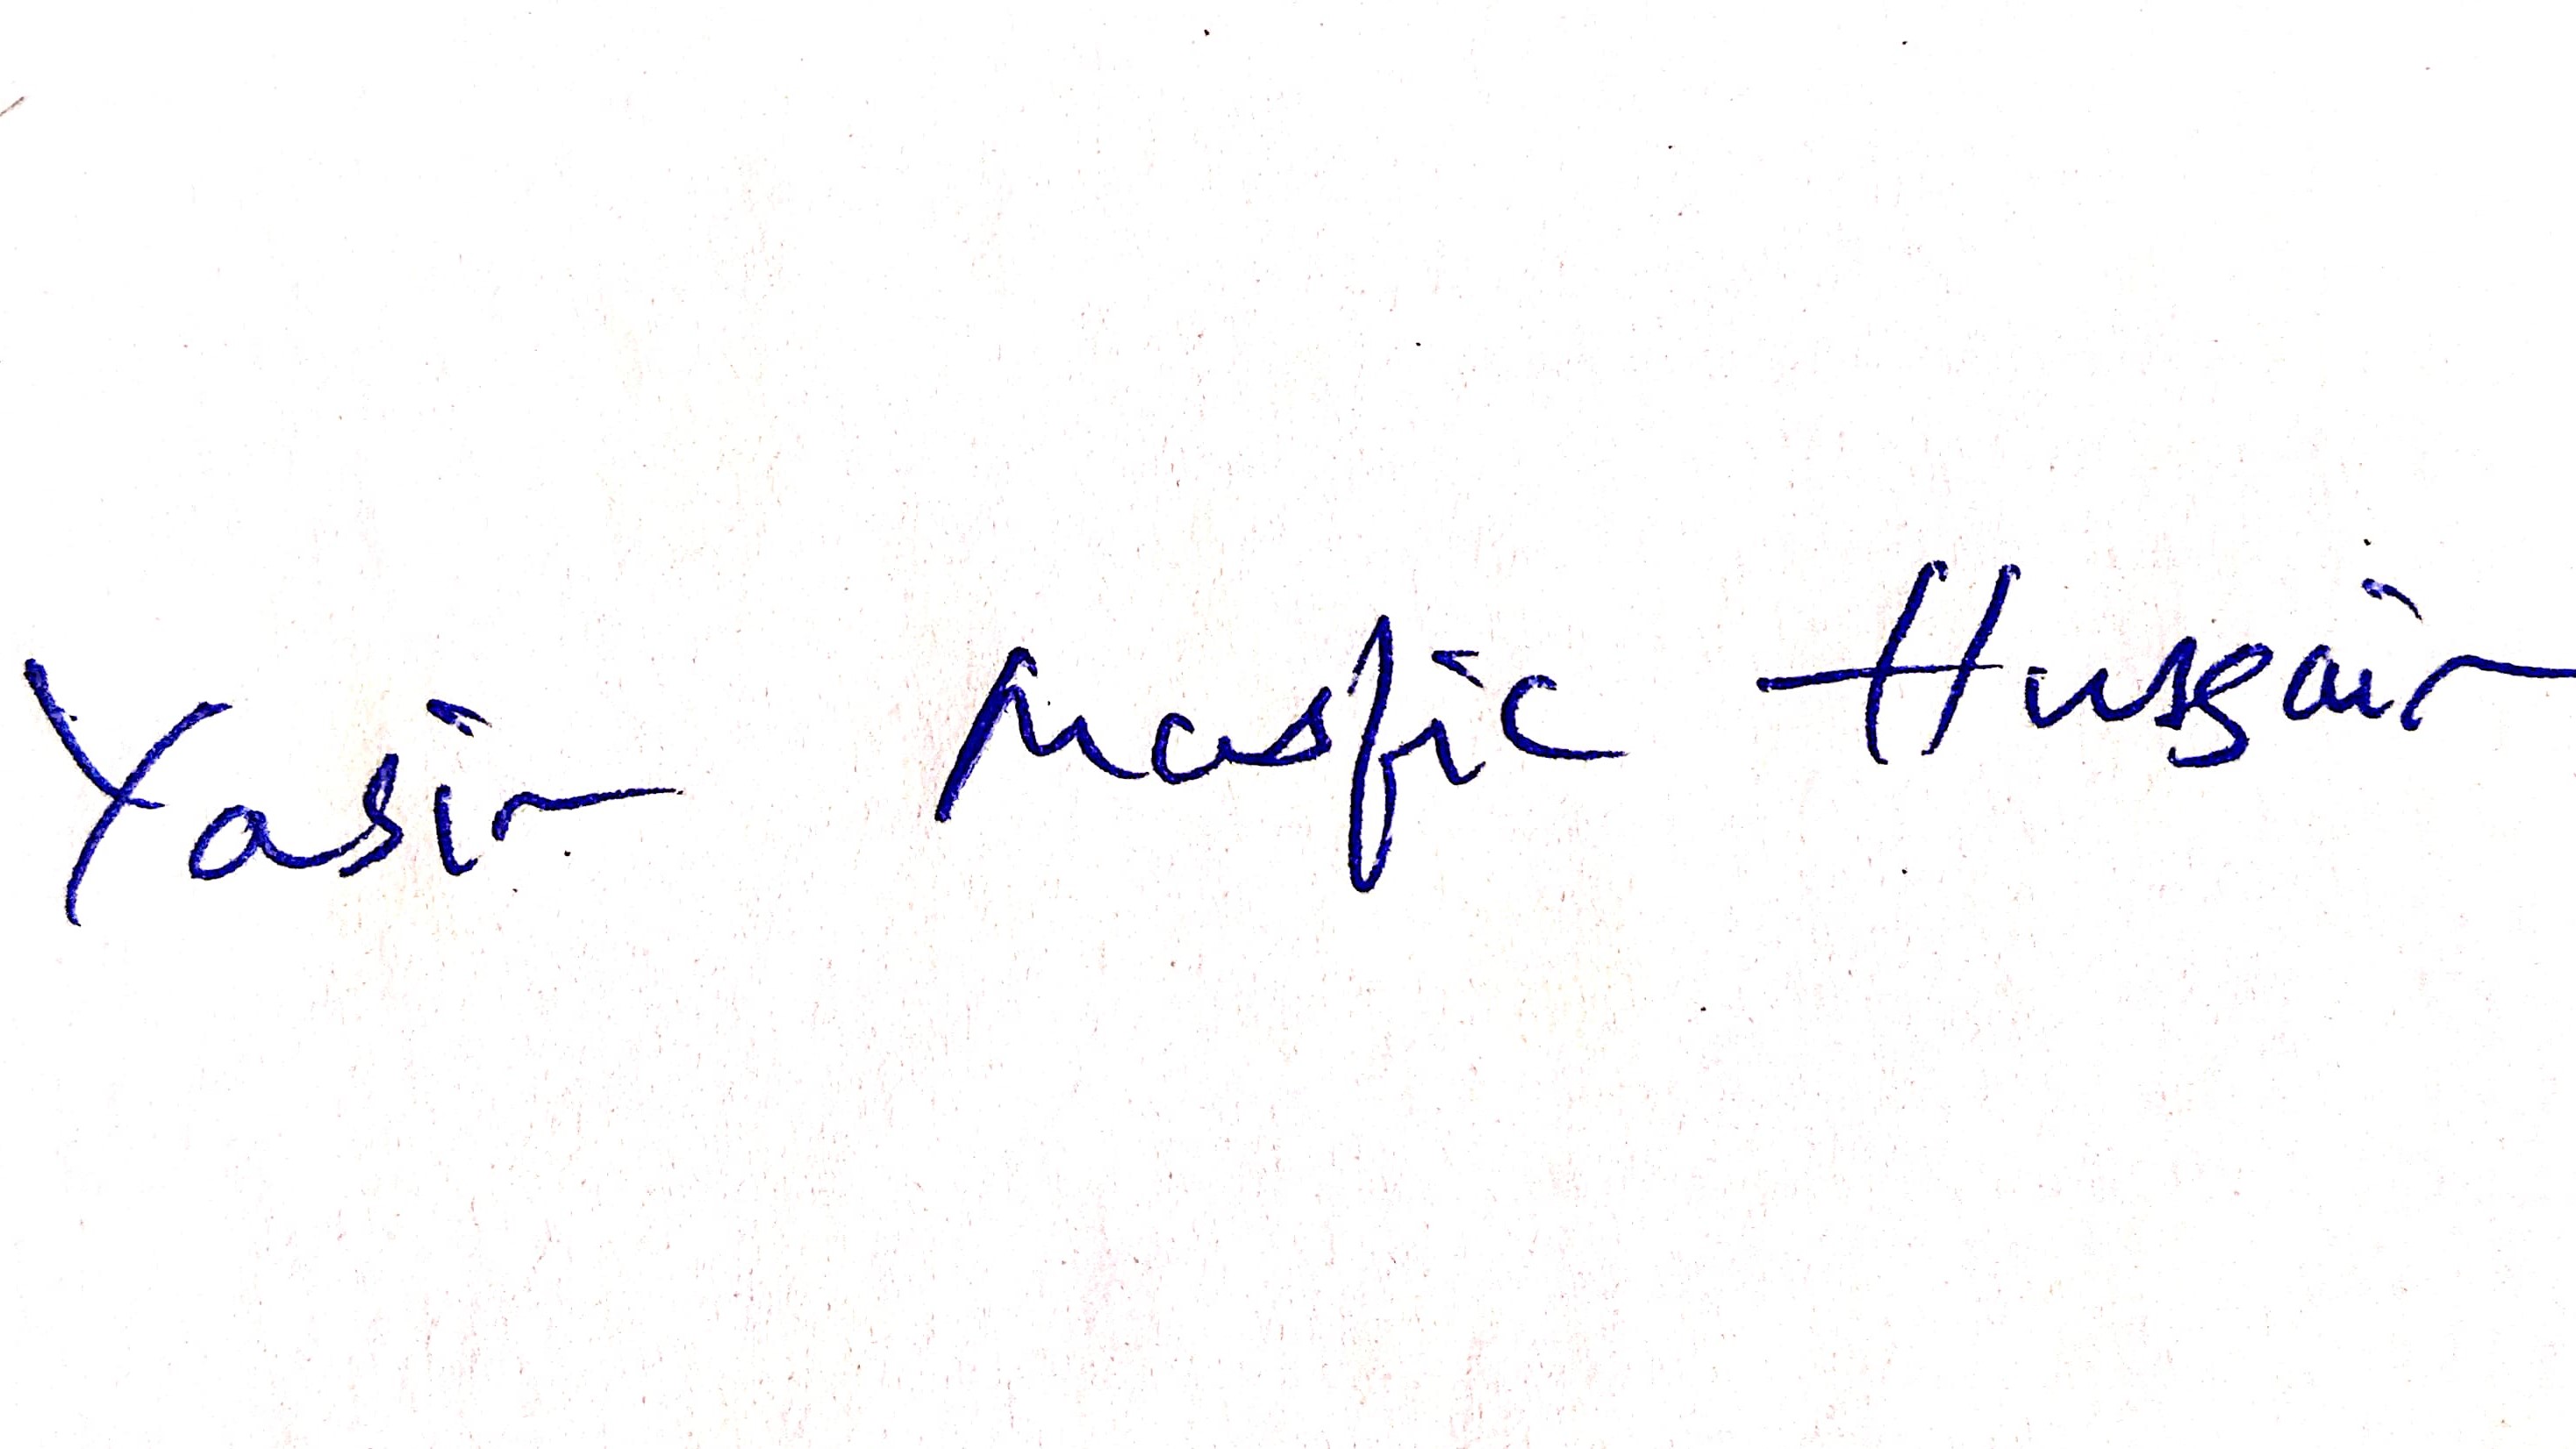 Yasin Masfic Hussain